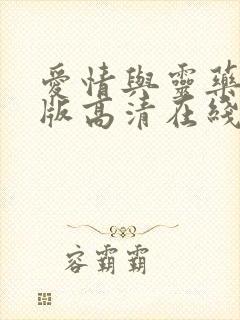 愛情與靈藥
版高清在綫
容霸霸